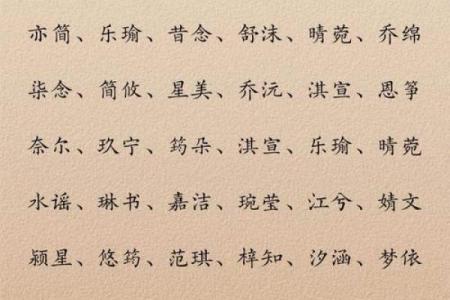 亦简、乐瑜、昔念、舒沫、晴菀、乔绵
柒念、简攸、星美、乔沅、淇宣、恩筝
奈尔、玖宁、筠朵、淇宣、乐瑜、晴菀
水谣、琳书、嘉洁、琬莹、江兮、婧文
颍星、悠筠、范琪、梓知、汐涵、梦依